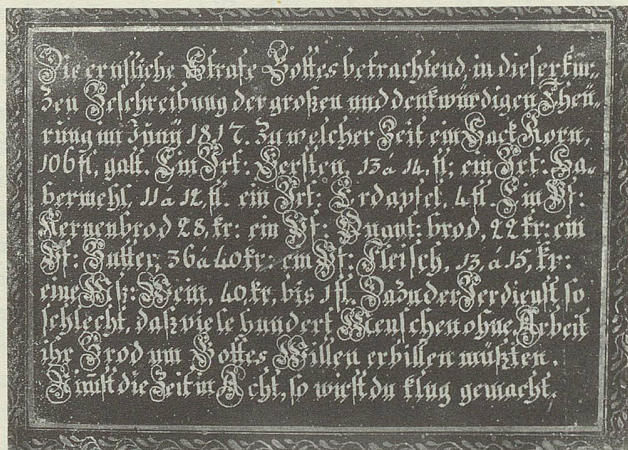 Die ernstliche Strafe Gottes betrachtend, in dieser kur-
zen Beschreibung der großen und denkwürdigen Theu-
rung im Juny 1817. Zu welcher Zeit ein Sack Korn,
106 fl, galt. Ein Vrt: Gersten, 13 á 14, fl: ein Vrt: Ha-
bermehl, 11 á 12, fl. ein Vrt: Erdäpfel, 4 fl. Ein Pf:
Kernenbrod 28, kr: ein Pf: brod, 22 kr: ein
Pf: Butter, 36 á 40 kr: ein Pf: Fleisch, 13 á 15, kr:
eine Mß: Wein, 40 kr, bis 1 fl. Dazu der Verdienst so
schlecht, daß viele hundert Menschen ohne Arbeit
ihr Brod um Gottes Willen erbitten mußten.
Nimst die Zeit in Acht, so wirst du klug gemacht.